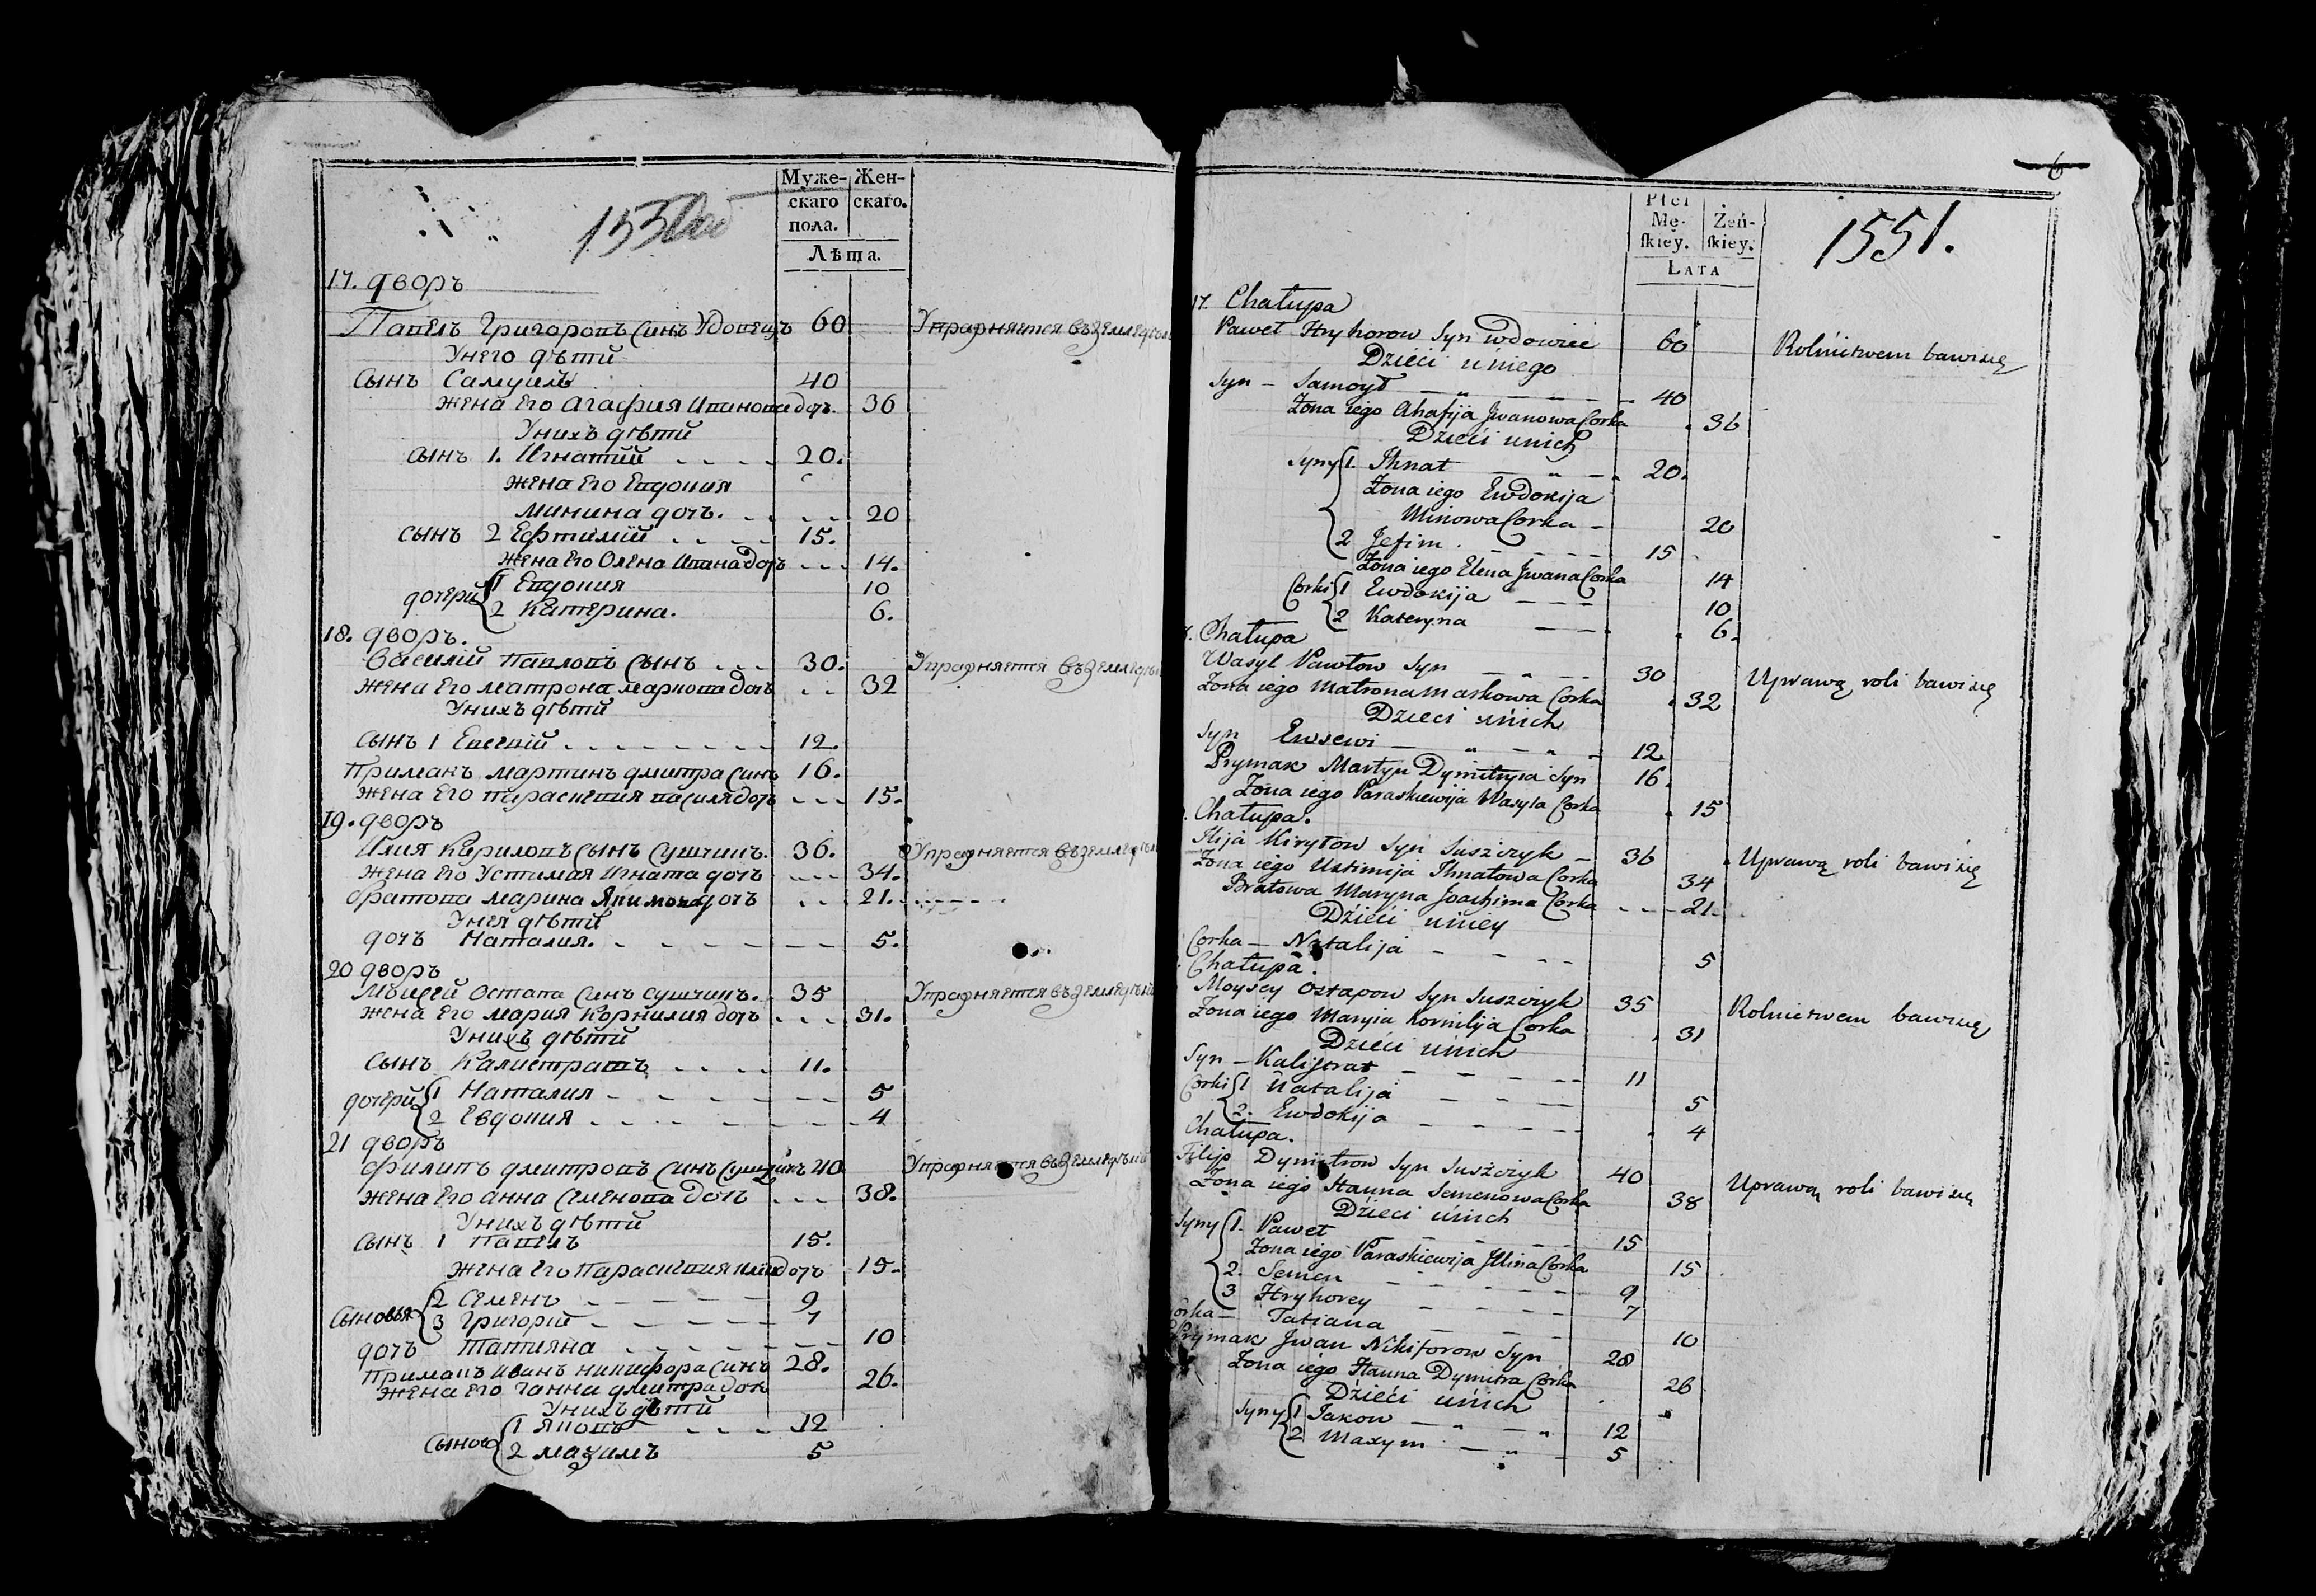 Муже-
скаго
пола.
Жен-
скаго.
Лѣта.
17. дворъ
Павелъ Григоровъ синъ Удовецъ 60 Упражняется въ земледел
Унего дѣти
сынъ Самуилъ 40
жена Его Агафия Иванова дочь. 36
Унихъ дѣти
сынъ 1. Игнатий 20.
жена Его Евдокия
минина дочь. 20
сынъ 2 Ефтимий 15.
жена Его Олена Ивана дочь 14.
дочери 1 Евдокия 10
2 Катерина. 6.
18. дворъ.
Василий Павловъ сынъ 30. Упражняется въ земледел
жена Его матрона маркова дочь 32
Унихъ дѣти
сынъ 1 Евсевий 12.
Примакъ мартинъ дмитра синъ 16.
жена Его параскевия василя дочь 15.
19. дворъ
Илия Кириловъ сынъ Сущикъ. 36. Упражняется въ земледел
жена Его Устимия Игната дочь 34.
братова марина Якимова дочь 21.
Унея дѣти
дочь Наталия. 5.
20 дворъ
Моисей Остапа синъ сущикъ. 35 Упражняется въ земледел
жена Его мария Корнилия дочь 31.
Унихъ дѣти
сынъ Калистратъ 11.
дочери 1 Наталия 5
2 Евдокия 4
21 дворъ
Филипъ дмитровъ синъ Сущикъ 40 Упражняется въ земледел
жена Его анна Семенова дочь 38.
Унихъ дѣти
сынъ 1 Павелъ 15.
жена Его Параскевия илии дочь 15.
сыновья 2 Семенъ 9
3 Григорий 7
дочь Татияна 10
Примакъ иванъ никифора синъ 28.
жена Его ганна дмитра дочь 26.
Унихъ дѣти
1 Яковъ 12
2 мазимъ 5
6
Płci
Mę-
ſkiey.
Żeń-
ſkiey.
LATA
1551.
17. Chałupa
Paweł Hryhorow Syn wdowiec 60 Rolnictwem bawi się
Dzieci u niego
Syn – Samoył 40
Żona iego Ahafija Jwanowa Corka 36
Dzieci unich
Syny 1. Ihnat 20.
Żona iego Ewdokija
Minowa Corka – 20
2 Jefim 15
Żona iego Elena Jwana Corka 14
Corki 1 Ewdokija 10
2 Kateryna 6.
Chałupa
Wasyl Pawłow Syn 30 Uprawą roli bawi się
Żona iego Matrona Markowa Corka 32
Dzieci unich
Syn Ewsewi 12
Prymak Martyn Dymitryia Syn 16.
Żona iego Paraskiewija Wasyla Corka 15
Chałupa.
Ilija Kiryłow Syn Suszczyk – 36 Uprawą roli bawi się
Żona iego Ustimija Ihnatowa Corka 34
Bratowa Maryna Joachima Corka 21.
Dzieci uniey
Corka – Natalija 5
Chałupa.
Moysey Ostapow Syn Suszczyk 35 Rolnictwem bawi się
Żona iego Maryia Kornilija Corka 31
Dzieci unich
Syn – Kaliſtrat 11
Corki 1 Natalija 5
2. Ewdokija 4
Chałupa.
Filip Dymitrow Syn Suszczyk 40 Uprawą roli bawi się
Żona iego Hanna Semenowa Corka 38
Dzieci unich
Syny 1. Paweł 15
Żona iego Paraskiewija Illina Corka 15
2. Semen 9
3 Hryhorey 7
Corka – Tatiana 10
Prymak Jwan Nikiforow Syn 28
Żona iego Hanna Dymitra Corka 26
Dzieci unich
Syny 1 Jakow 12
2 Maxym 5